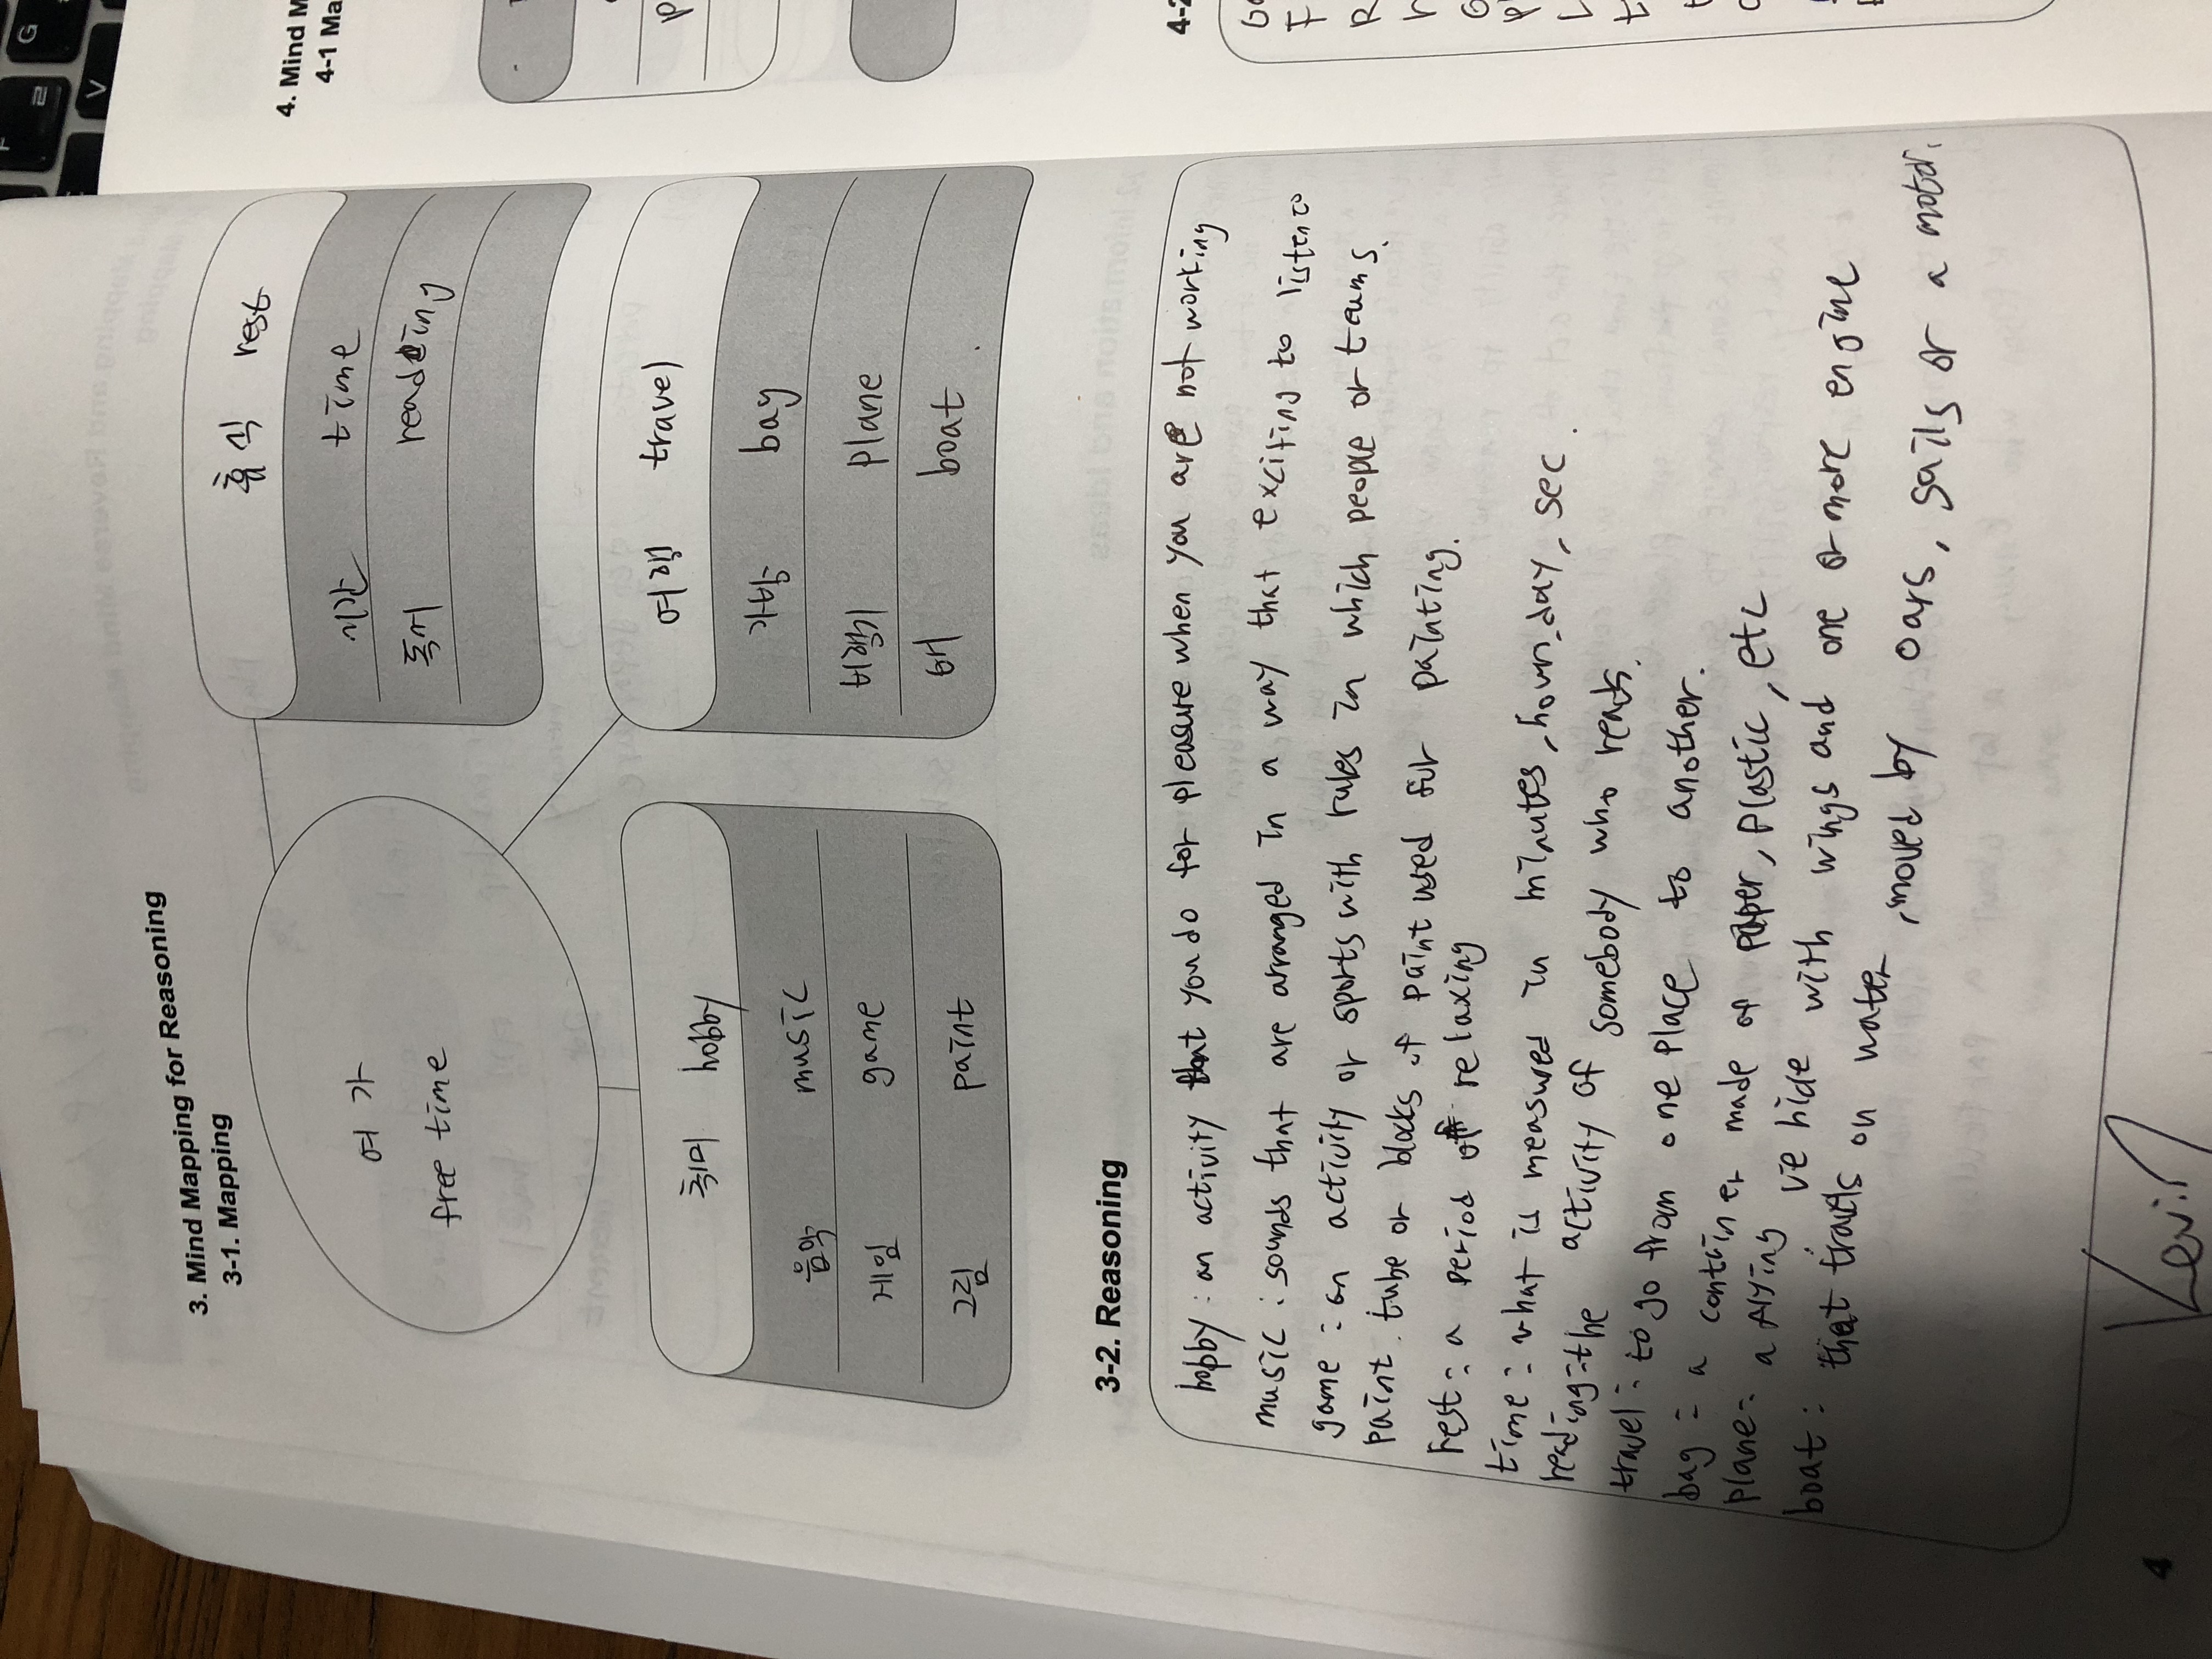 3. Mind Mapping for Reasoning
3-1. Mapping
여가
free time
휴식 rest
시간 time
독서 reading
취미 hobby
음악 music
게임 game
그림 paint
여행 travel
가방 bag
비행기 plane
배 boat
3-2. Reasoning
hobby : an activity that you do for pleasure when you are not working
music : sounds that are arranged in a way that exciting to listen to
game : an activity or sports with rules in which people or taums.
paint : tube or blocks of paint used for painting.
rest : a period of relaxing
time : what is measured in minutes, hour, day, sec.
reading : the activity of somebody who reads.
travel : to go from one place to another.
bag : a continer made of paper, plastic, etc
plane : a flying vehide with wings and one or more engine
boat : that travels on water, moved by oars, sails or a motor.
Kevin
4
4. Mind M
4-1 Ma
4-2
G
ㄹ
V